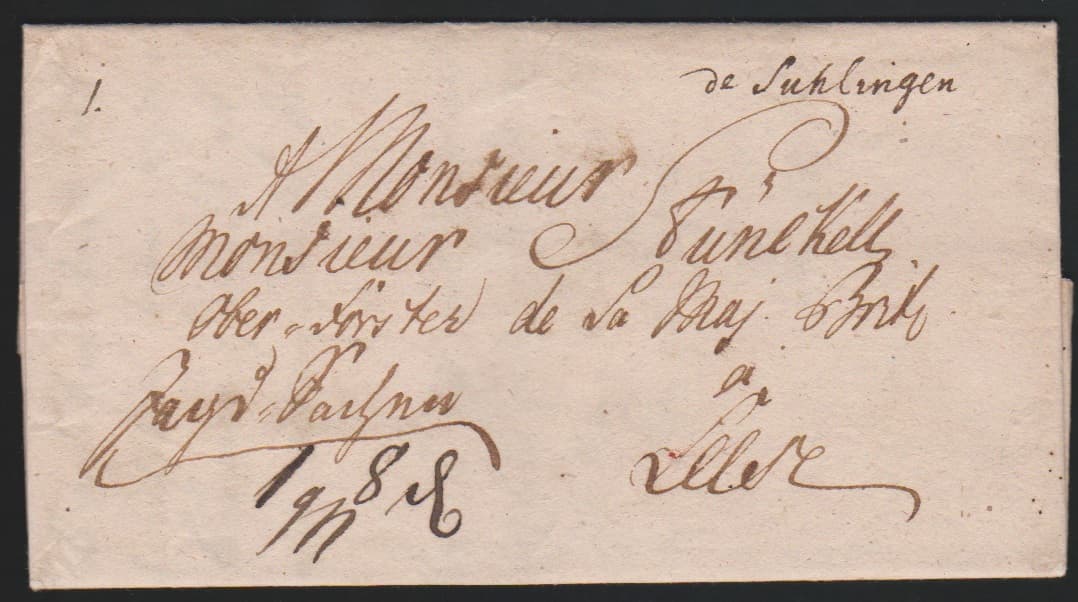 1.
de Suhlingen
A Monsieur
Monsieur Fünekell
Ober-Förster de Sa Maj. Brit.
Jagd-Sachen
a
1 ggr 8 d